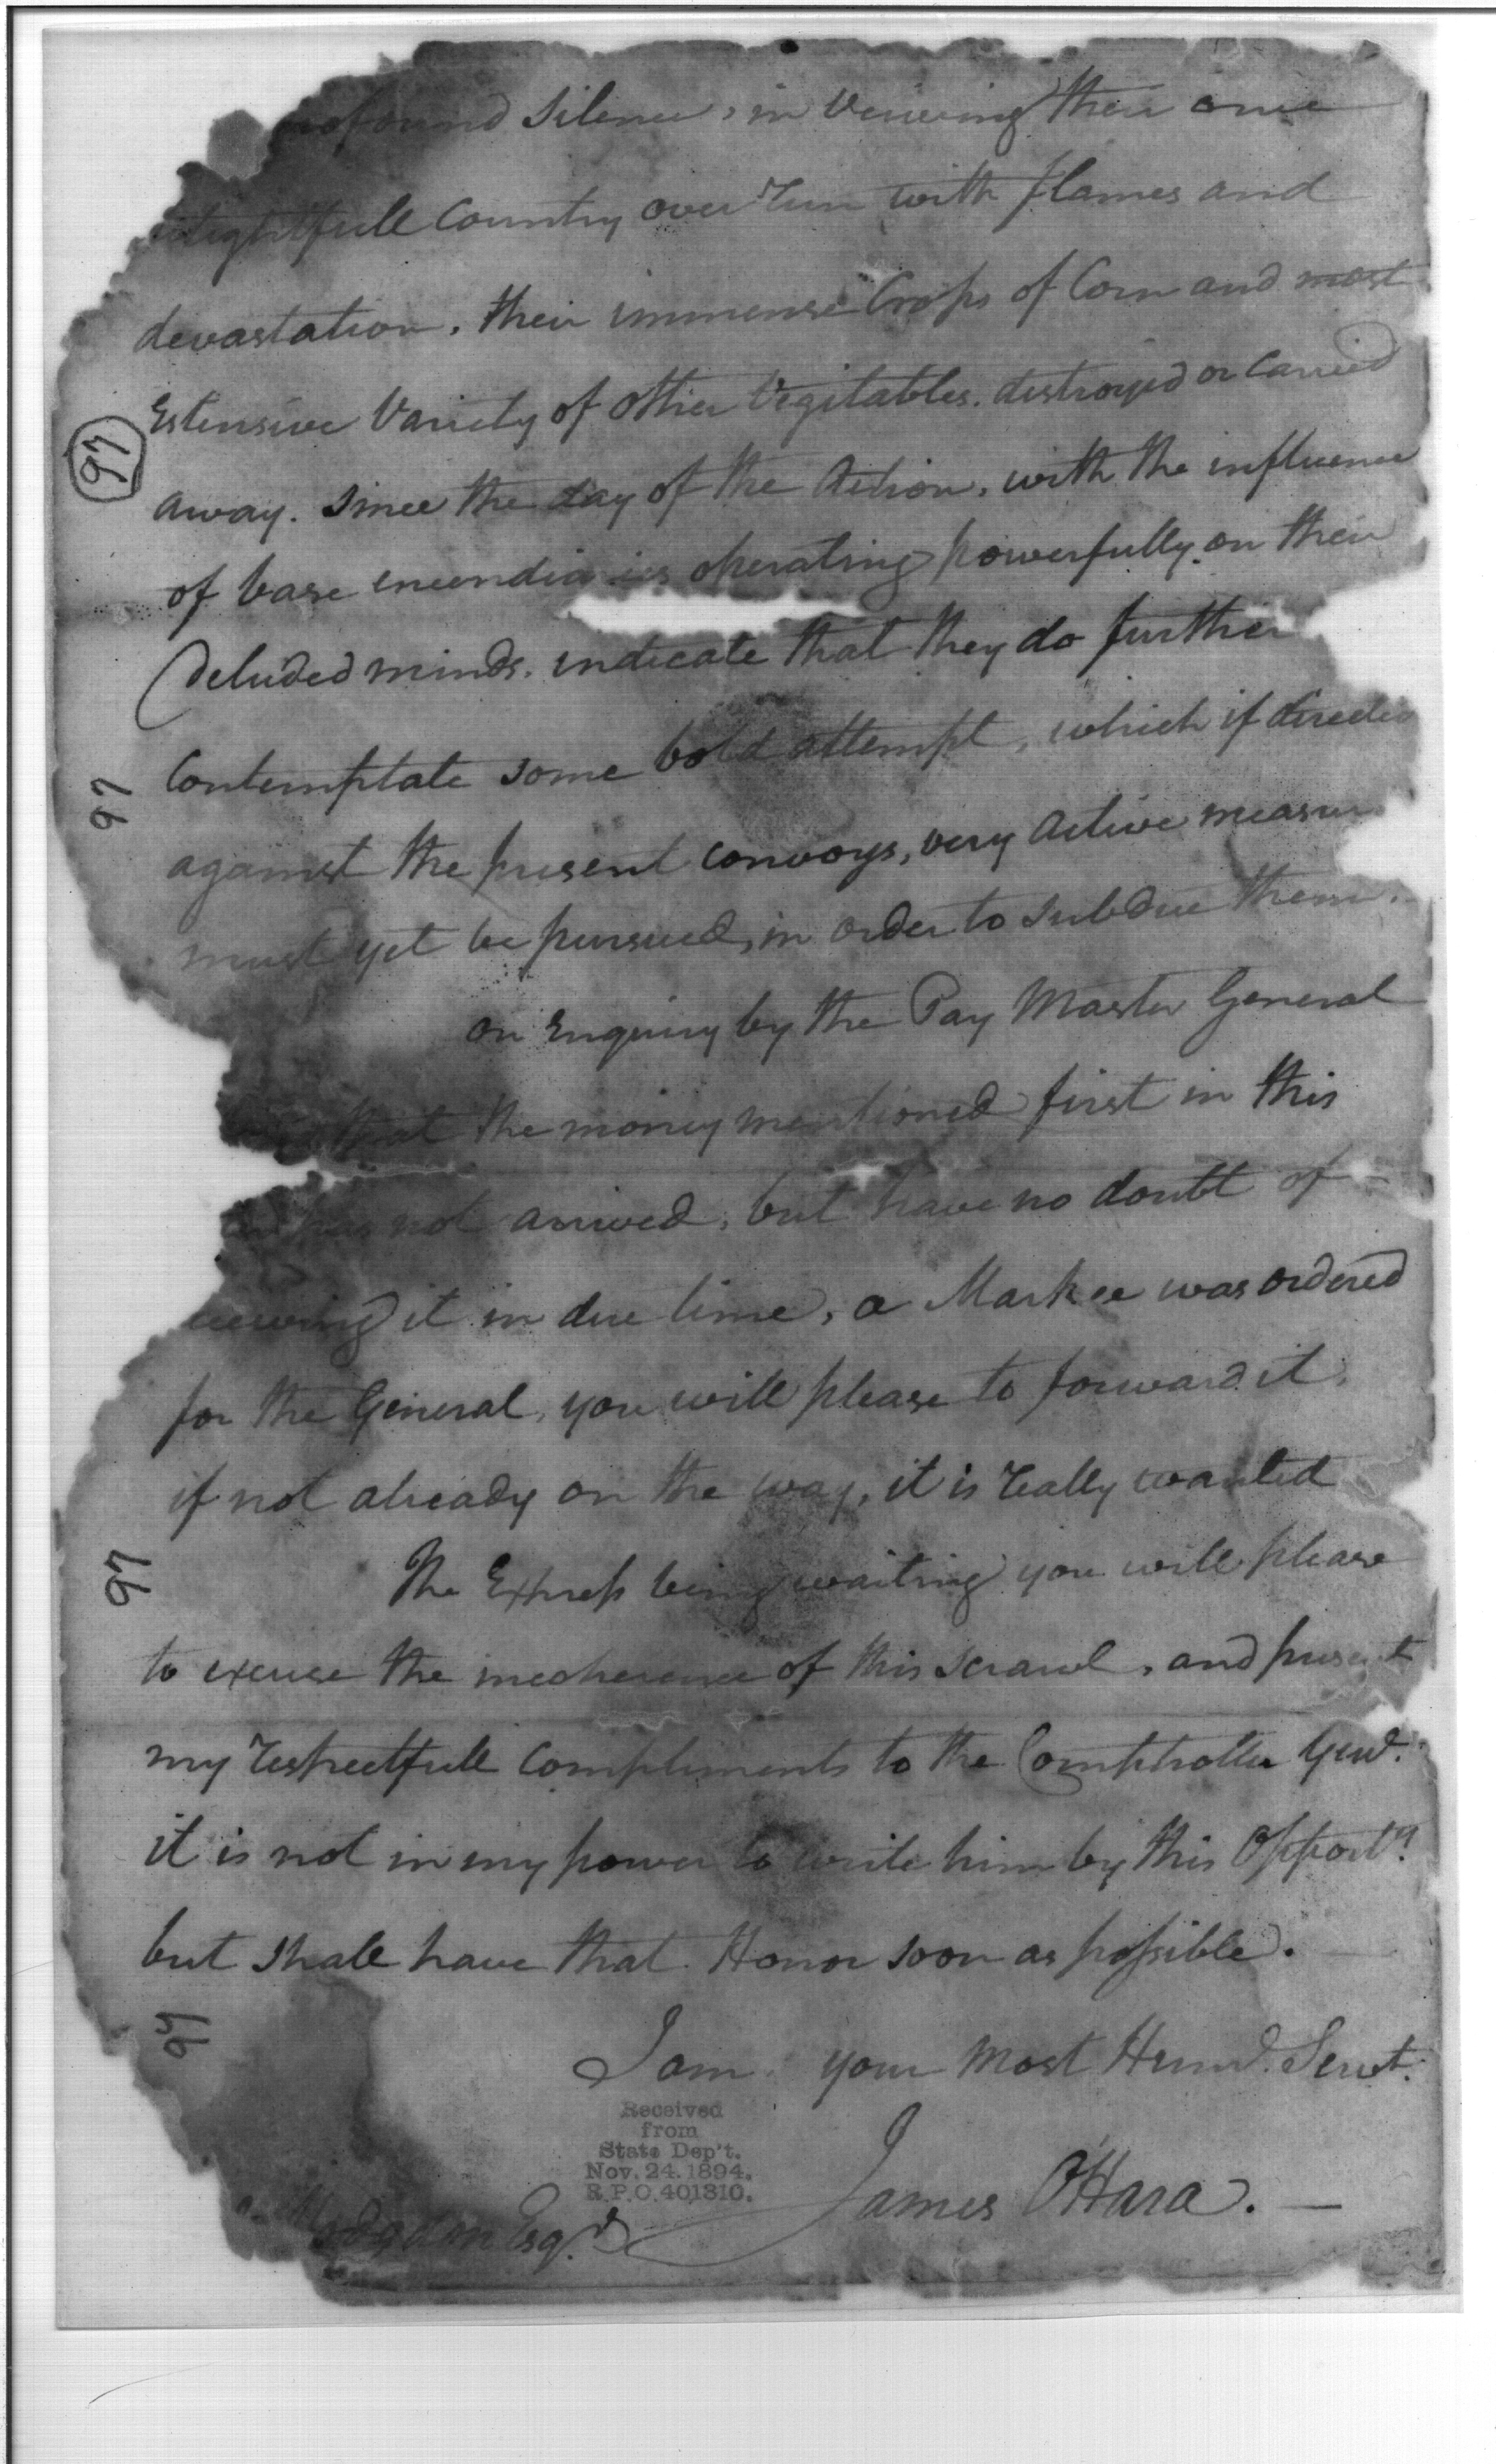 profound silence, in Veiwing their once
delightfull Country over run with flames and
devastation, their immense Crops of Corn and most
Extensive Variety of other Vegitables. destroyed or Carried
away. Since the day of the Action, with the influence
of base incendiaries operating powerfully on their
deluded minds. indicate that they do further
Contemplate some bold attempt, which if directed
against the present convoys, very Active measur
must yet be pursued, in order to subdue them.
on Enquiry by the Pay Master General
that the money mentioned first in this
has not arrived, but have no doubt of
it in due time, a Markee was ordered
for the General, you will please to forward it,
if not already on the way, it is really wanted
The Express being waiting you will please
to excuse the incoherence of this scrawl, and present
my respectfull Compliments to the Comptroller Genl.
it is not in my power to write him by this Opporty.
but shall have that Honor soon as possible.
I am your most Humb. Servt.
James O'Hara.
odgdon Esqr.
Received
from
State Dep't.
Nov. 24. 1894.
R.P.O. 401310.
97
97
97
97